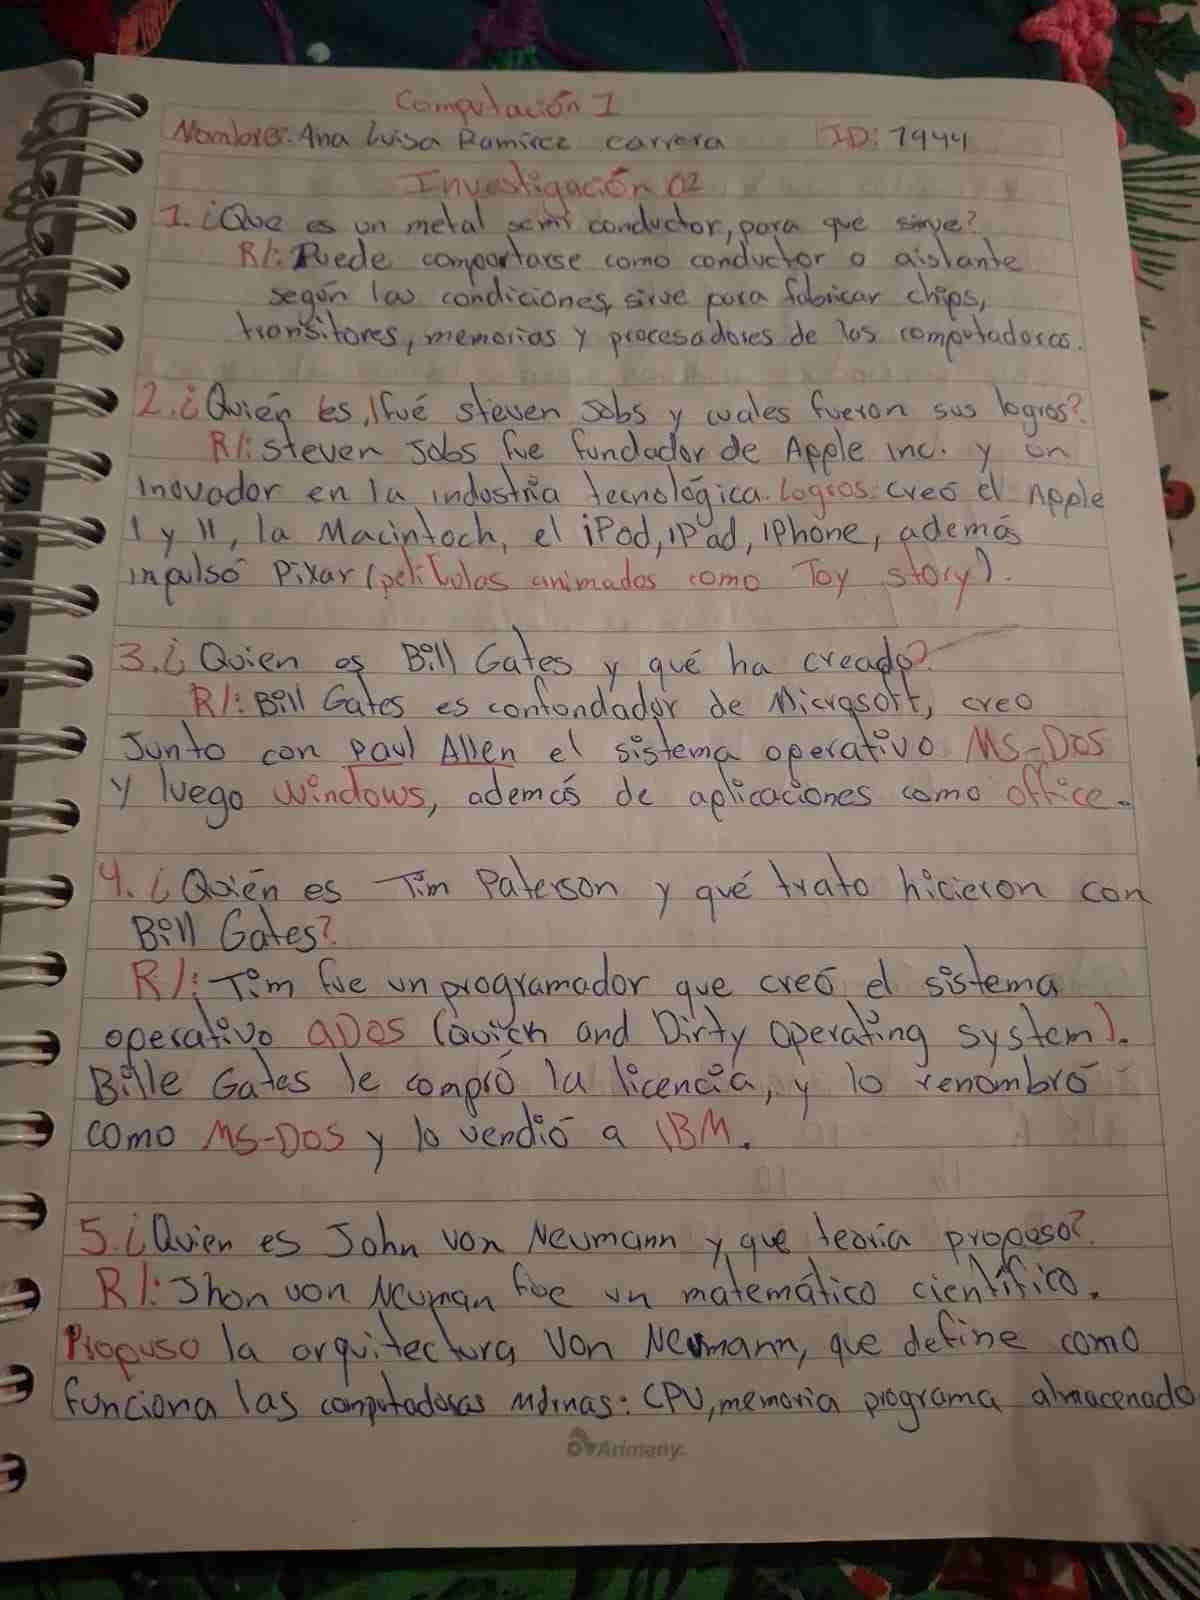 Computación 1
Nombre: Ana Luisa Ramírez Carrera ID: 1944
Investigación 02
1. ¿Que es un metal semi conductor, para que sirve?
R/: Puede comportarse como conductor o aislante
según las condiciones, sirve para fabricar chips,
transitores, memorias y procesadores de las computadoras.
2. ¿Quién es, fué steven Jobs y cuales fueron sus logros?
R/: steven Jobs fue fundador de Apple inc. y un
inovador en la industria tecnológica. Logros: creó el Apple
I y II, la Macintoch, el iPod, iPad, iPhone, además
inpulsó Pixar (películas animadas como Toy story).
3. ¿Quien es Bill Gates y qué ha creado?
R/: Bill Gates es confondador de Microsoft, creo
Junto con Paul Allen el sistema operativo MS-DOS
y luego Windows, además de aplicaciones como office.
4. ¿Quién es Tim Paterson y qué trato hicieron con
Bill Gates?
R/: Tim fue un programador que creó el sistema
operativo QDOS (Quick and Dirty Operating System).
Bille Gates le compró la licencia, y lo renombró
como MS-DOS y lo vendió a IBM.
5. ¿Quien es John von Neumann y que teoría proposo?
R/: Jhon von Neuman fue un matemático científico.
Propuso la arquitectura Von Neumann, que define como
funciona las computadoras : CPU, memoria programa almacenado
Arimany